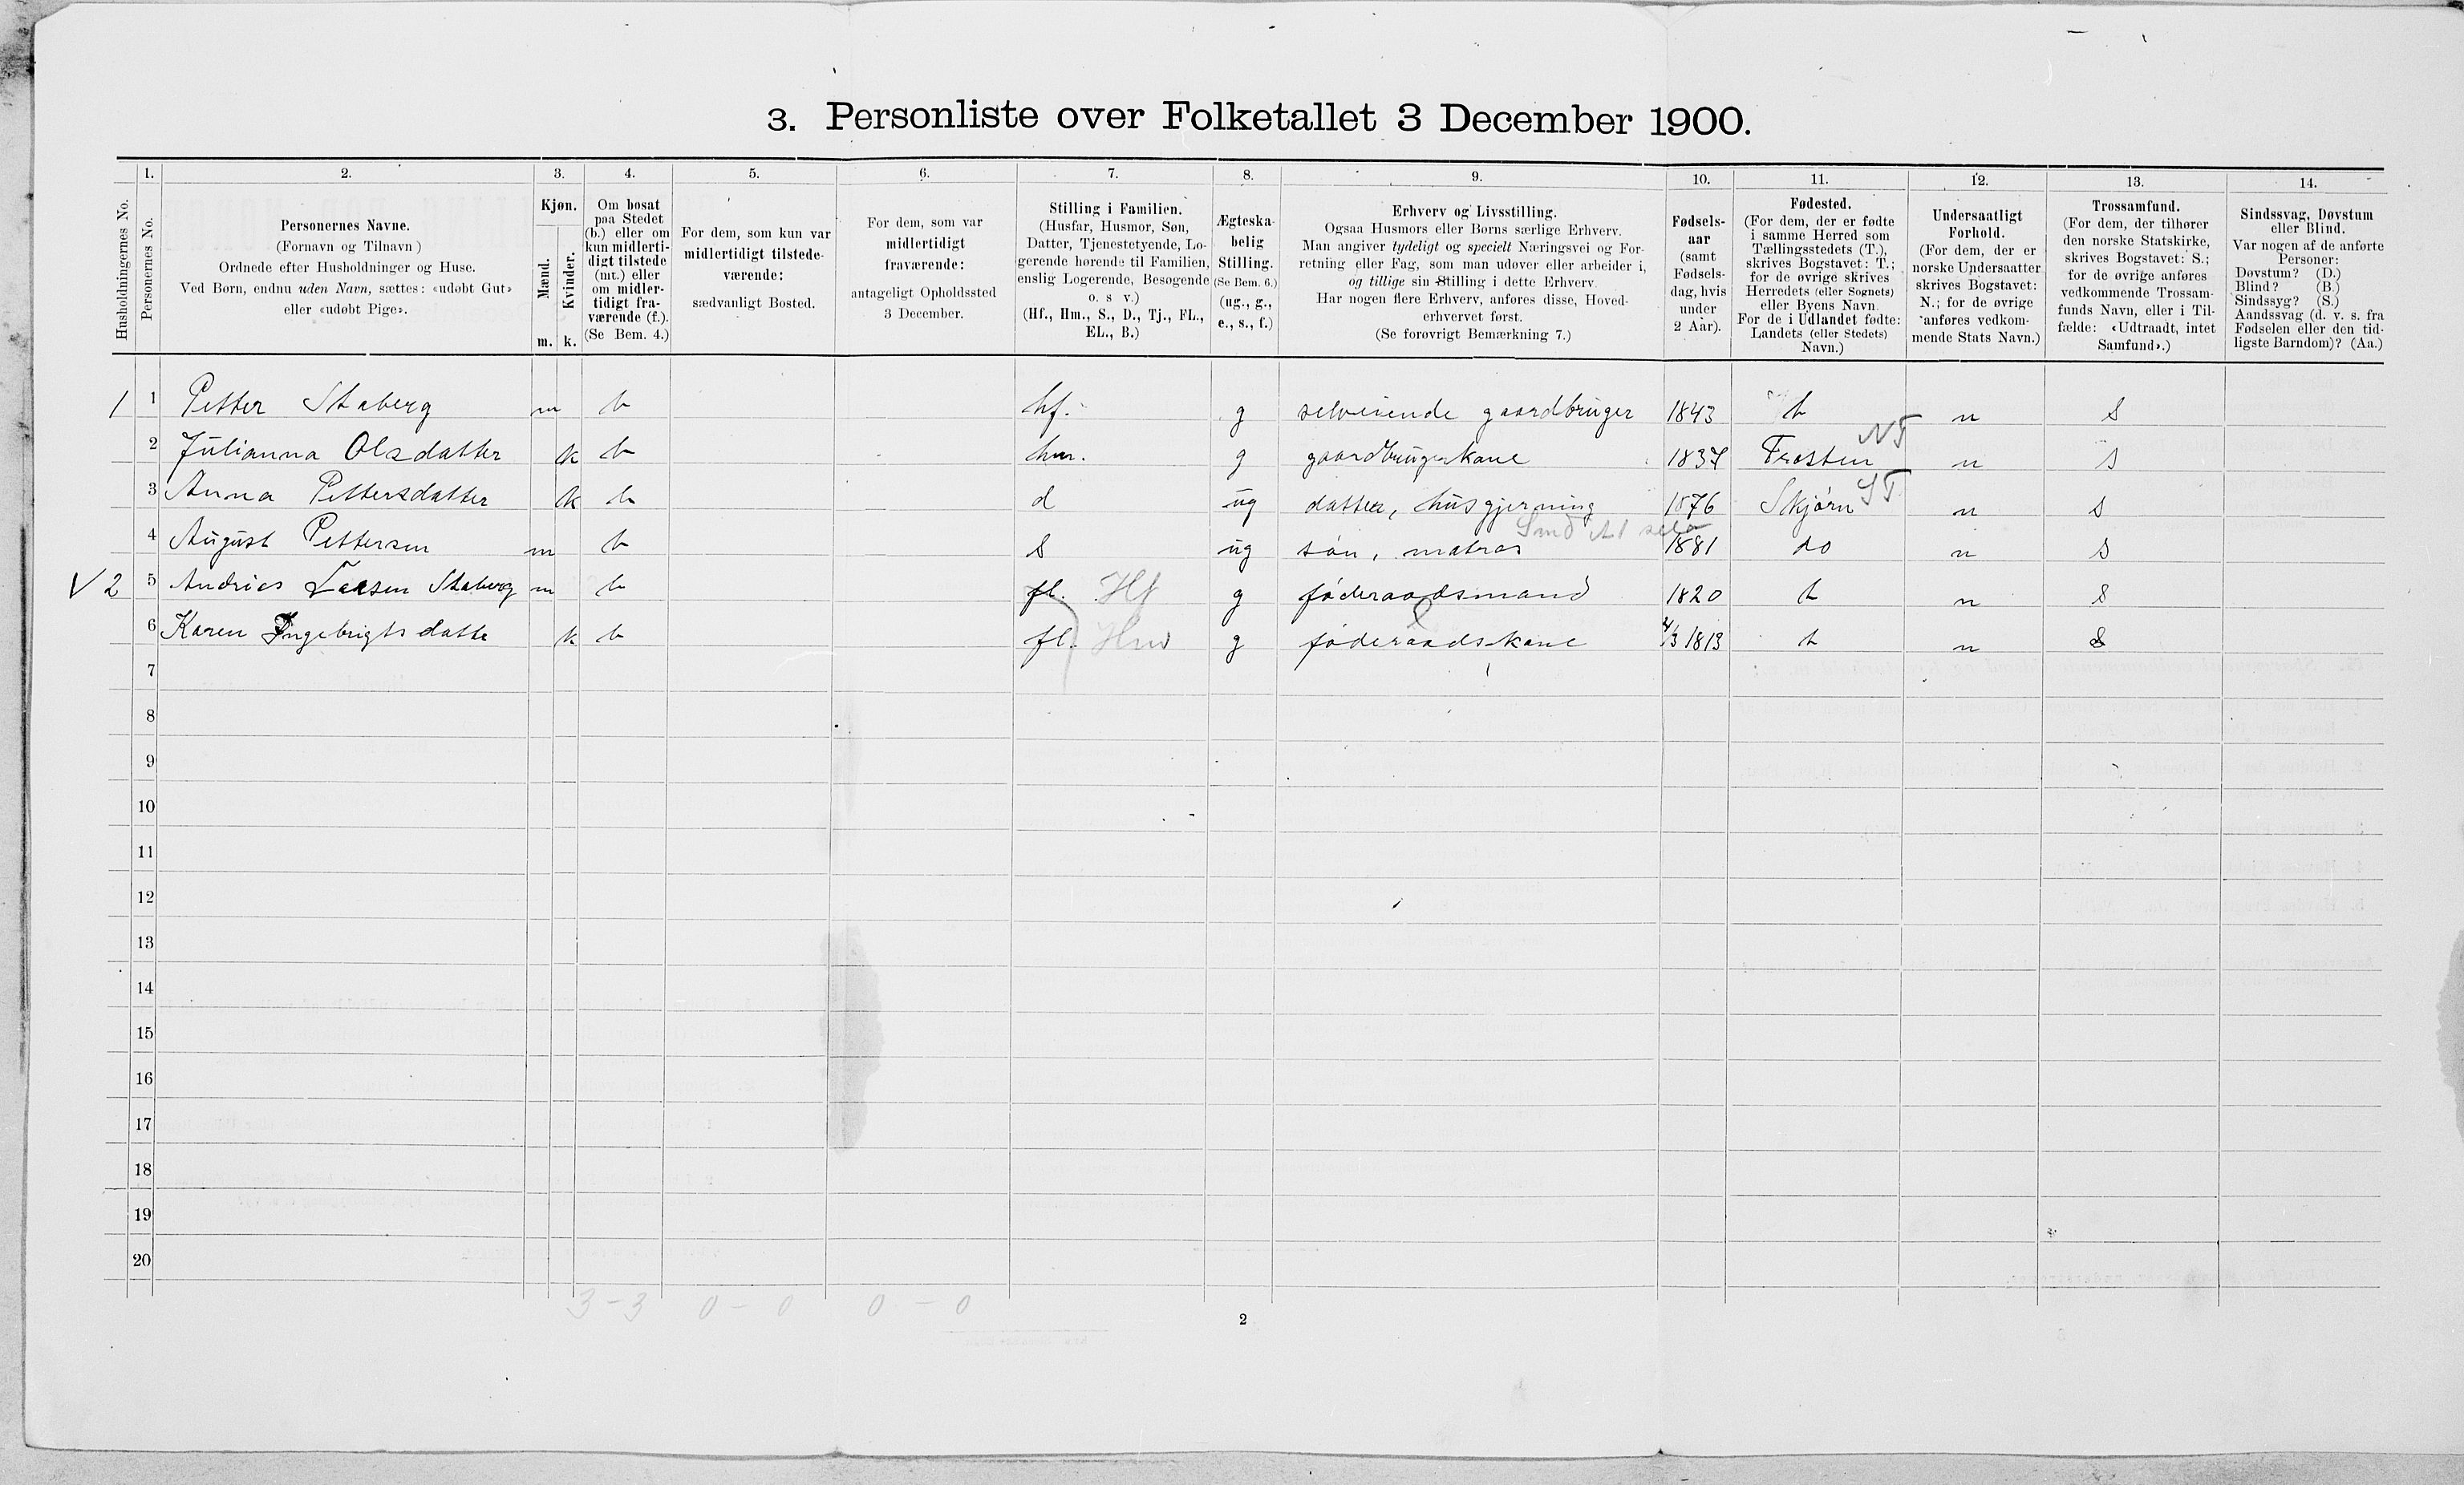 3. Personliste over Folketallet 3 December 1900.
Husholdningernes No.
1.
Personernes No.
2.
Personernes Navne.
(Fornavn og Tilnavn)
Ordnede efter Husholdninger og Huse.
Ved Børn, endnu uden Navn, sættes: «udøbt Gut»
eller «udøbt Pige».
3.
Kjøn.
Mænd.
Kvinder.
m. k.
4.
Om bosat
paa Stedet
(b.) eller om
kun midlerti-
digt tilstede
(mt.) eller
om midler-
tidigt fra-
værende (f.).
(Se Bem. 4.)
5.
For dem, som kun var
midlertidigt tilstede-
værende:
sædvanligt Bosted.
6.
For dem, som var
midlertidigt
fraværende:
antageligt Opholdssted
3 December.
7.
Stilling i Familien.
(Husfar, Husmor, Søn,
Datter, Tjenestetyende, Lo-
gerende hørende til Familien,
enslig Logerende, Besøgende
o. s v.)
(Hf., Hm., S., D., Tj., FL.,
EL., B.)
8.
Ægteska-
belig
Stilling.
(Se Bem. 6.)
(ug., g.,
e., s., f.)
9.
Erhverv og Livsstilling.
Ogsaa Husmors eller Børns særlige Erhverv.
Man angiver tydeligt og specielt Næringsvei og For-
retning eller Fag, som man udøver eller arbeider i,
og tillige sin Stilling i dette Erhverv.
Har nogen flere Erhverv, anføres disse, Hoved-
erhvervet først.
(Se forøvrigt Bemærkning 7.)
10.
Fødsels-
aar
(samt
Fødsels-
dag, hvis
under
2 Aar).
11.
Fødested.
(For dem, der er fødte
i samme Herred som
Tællingsstedets (T.),
skrives Bogstavet: T.;
for de øvrige skrives
Herredets (eller Sognets)
eller Byens Navn.
For de i Udlandet fødte:
Landets (eller Stedets)
Navn.)
12.
Undersaatligt
Forhold.
(For dem, der er
norske Undersaatter
skrives Bogstavet:
N.; for de øvrige
anføres vedkom-
mende Stats Navn.)
13.
Trossamfund.
(For dem, der tilhører
den norske Statskirke,
skrives Bogstavet: S.;
for de øvrige anføres
vedkommende Trossam-
funds Navn, eller i Til-
fælde: «Udtraadt, intet
Samfund».)
14.
Sindssvag, Døvstum
eller Blind.
Var nogen af de anførte
Personer:
Døvstum? (D.)
Blind? (B.)
Sindssyg? (S.)
Aandssvag (d. v. s. fra
Fødselen eller den tid-
ligste Barndom)? (Aa.)
1 1 Petter Staberg m b hf. g selveiende gaardbruger 1843 t n S
2 Julianna Olsdatter k b hm. g gaardbrugerkone 1837 Frosten NT n S
3 Anna Pettersdatter k b d ug datter, husgjerning 1876 Skjørn ST n S
4 August Pettersen m b s ug søn, matros 1881 do n S
V 2 5 Andrias Larsen Staberg m b fl. Hf g føderaadsmand 1820 t n S
6 Karen Ingebrigtsdatte k b fl. Hm g føderaadskone 4/3 1813 t n S
7
8
9
10
11
12
13
14
15
16
17
18
19
20
3 - 3 0 - 0 0 - 0
2